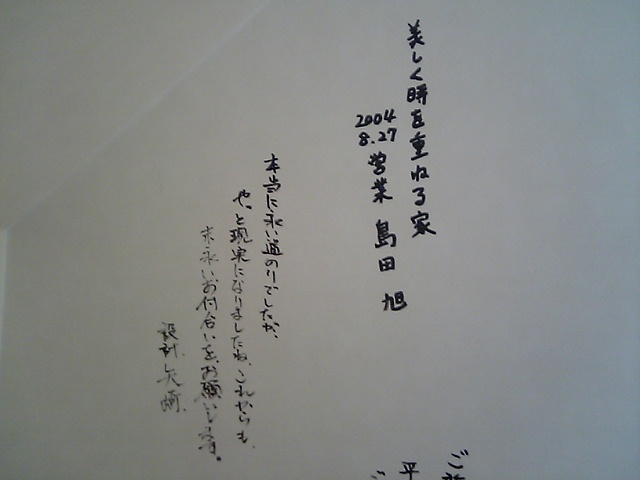 美しく時を重ねる家
2004
8.27
営業 島田 旭
本当に永い道のりでしたが、
やっと現実になりましたね。これからも
末永いお付合いをお願いします。
設計 矢崎
ご
平